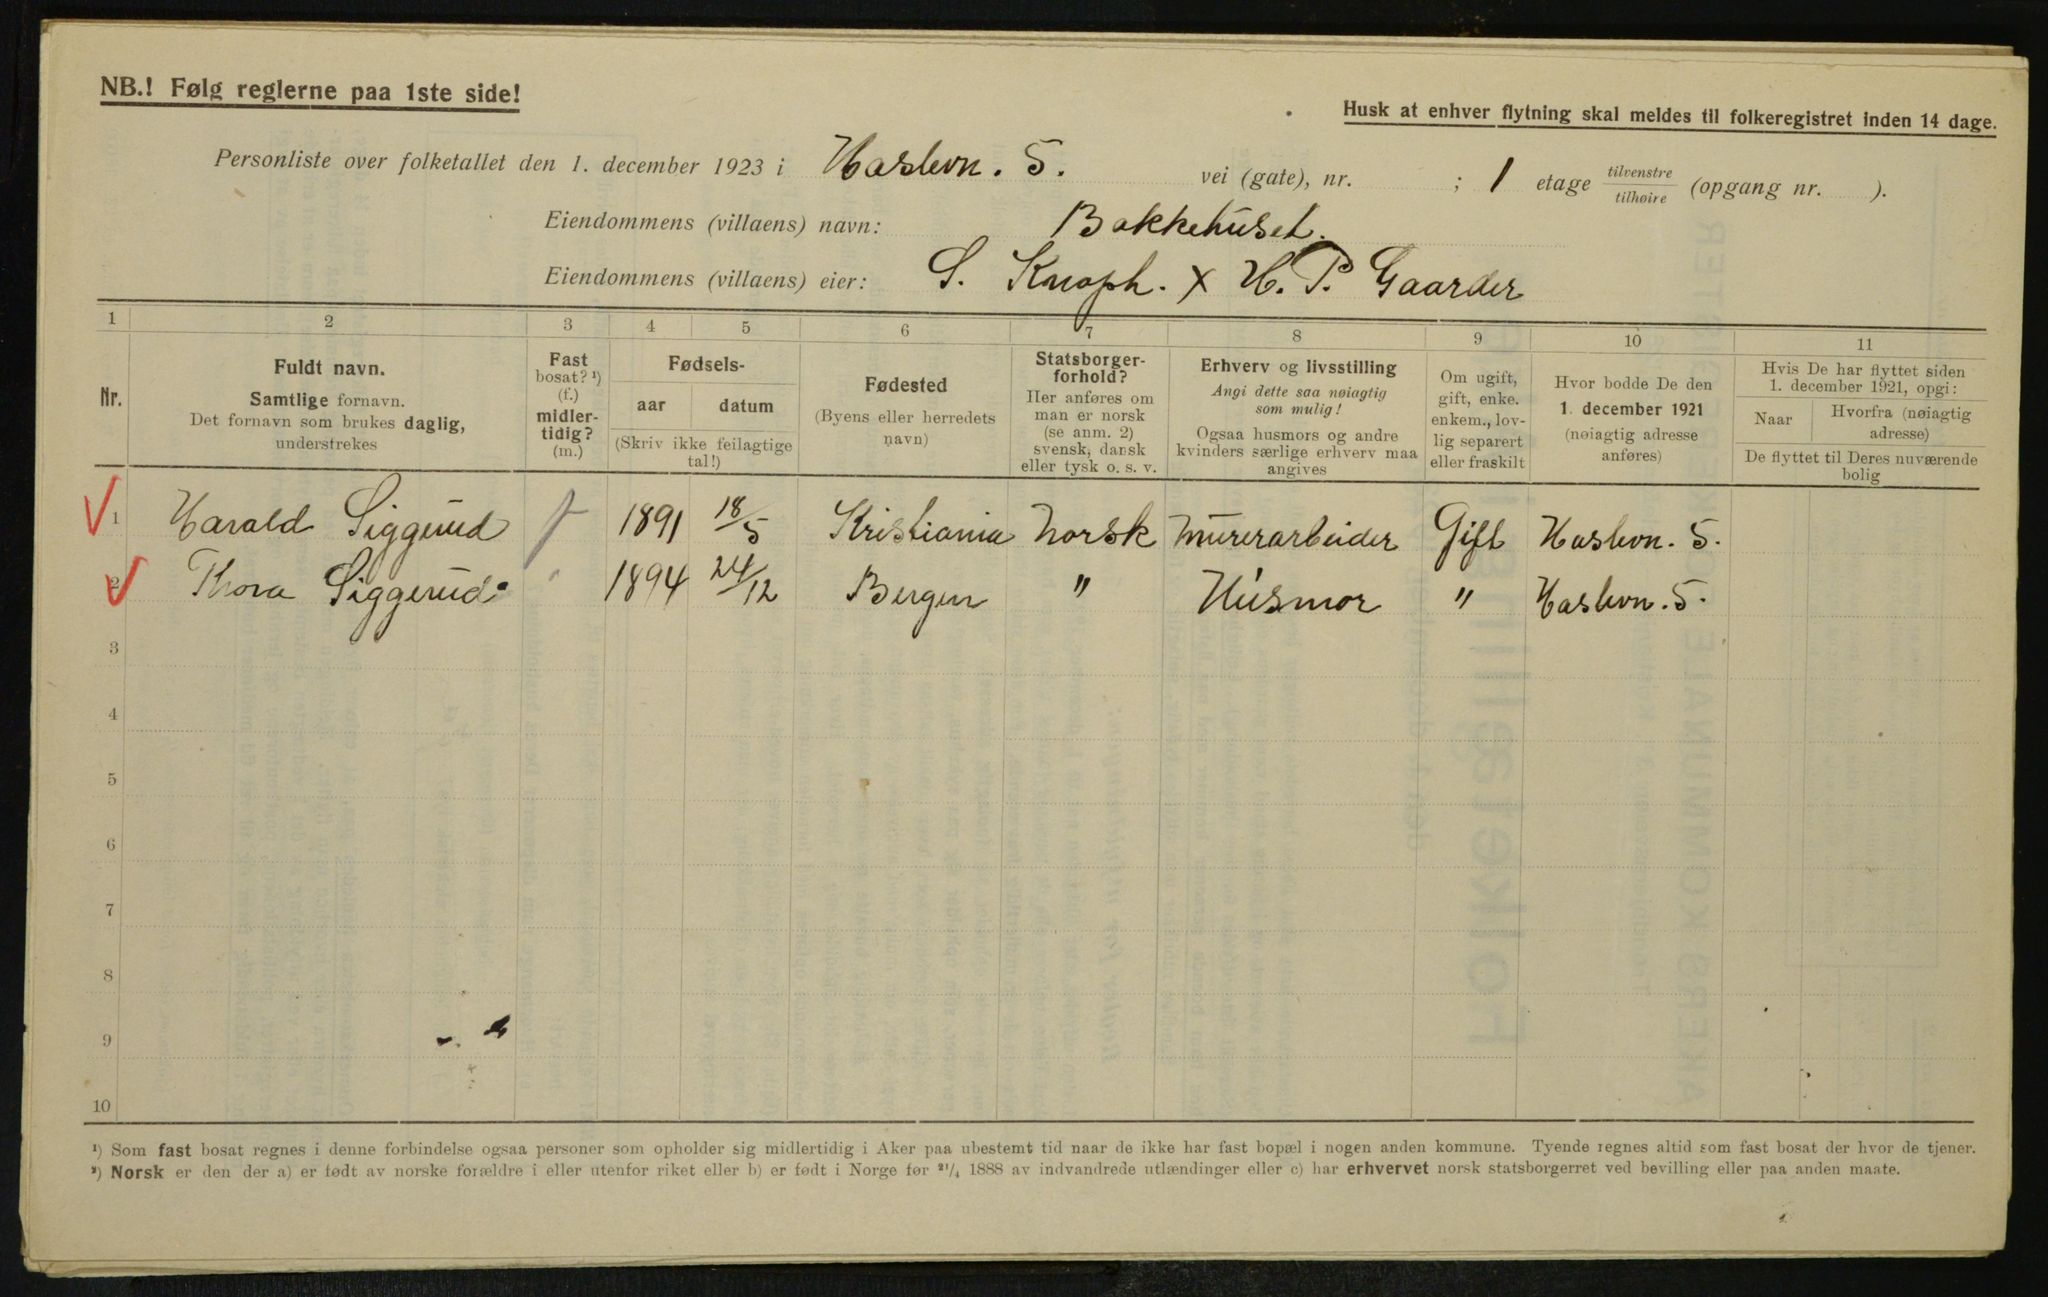 NB.! Følg reglerne paa 1ste side!
Husk at enhver flytning skal meldes til folkeregistret inden 14 dage.
Personliste over folketallet den 1. december 1923 i Haslevn. 5. vei (gate), nr. ; 1 etage tilvenstre / tilhøire (opgang nr. ).
Eiendommens (villaens) navn: Bakkehuset.
Eiendommens (villaens) eier: S. Knoph. x H. P. Gaarder
1 2 3 4 5 6 7 8 9 10 11
Nr.
Fuldt navn.
Samtlige fornavn.
Det fornavn som brukes daglig,
understrekes
Fast
bosat? ¹)
(f.)
midler-
tidig?
(m.)
Fødsels-
aar datum
(Skriv ikke feilagtige
tal!)
Fødested
(Byens eller herredets
navn)
Statsborger-
forhold?
Her anføres om
man er norsk
(se anm. 2)
svensk, dansk
eller tysk o. s. v.
Erhverv og livsstilling
Angi dette saa nøiagtig
som mulig!
Ogsaa husmors og andre
kvinders særlige erhverv maa
angives
Om ugift,
gift, enke.
enkem., lov-
lig separert
eller fraskilt
Hvor bodde De den
1. december 1921
(nøiagtig adresse
anføres)
Hvis De har flyttet siden
1. december 1921, opgi:
Naar Hvorfra (nøiagtig
adresse)
De flyttet til Deres nuværende
bolig
1 Harald Siggerud f 1891 18/5 Kristiania Norsk Murerarbeider Gift Haslevn. 5.
2 Thora Siggerud. " 1894 24/12 Bergen " Husmor " Haslevn. 5.
3
4
5
6
7
8
9
10
¹) Som fast bosat regnes i denne forbindelse ogsaa personer som opholder sig midlertidig i Aker paa ubestemt tid naar de ikke har fast bopæl i nogen anden kommune. Tyende regnes altid som fast bosat der hvor de tjener.
²) Norsk er den der a) er født av norske forældre i eller utenfor riket eller b) er født i Norge før ²¹/₄ 1888 av indvandrede utlændinger eller c) har erhvervet norsk statsborgerret ved bevilling eller paa anden maate.